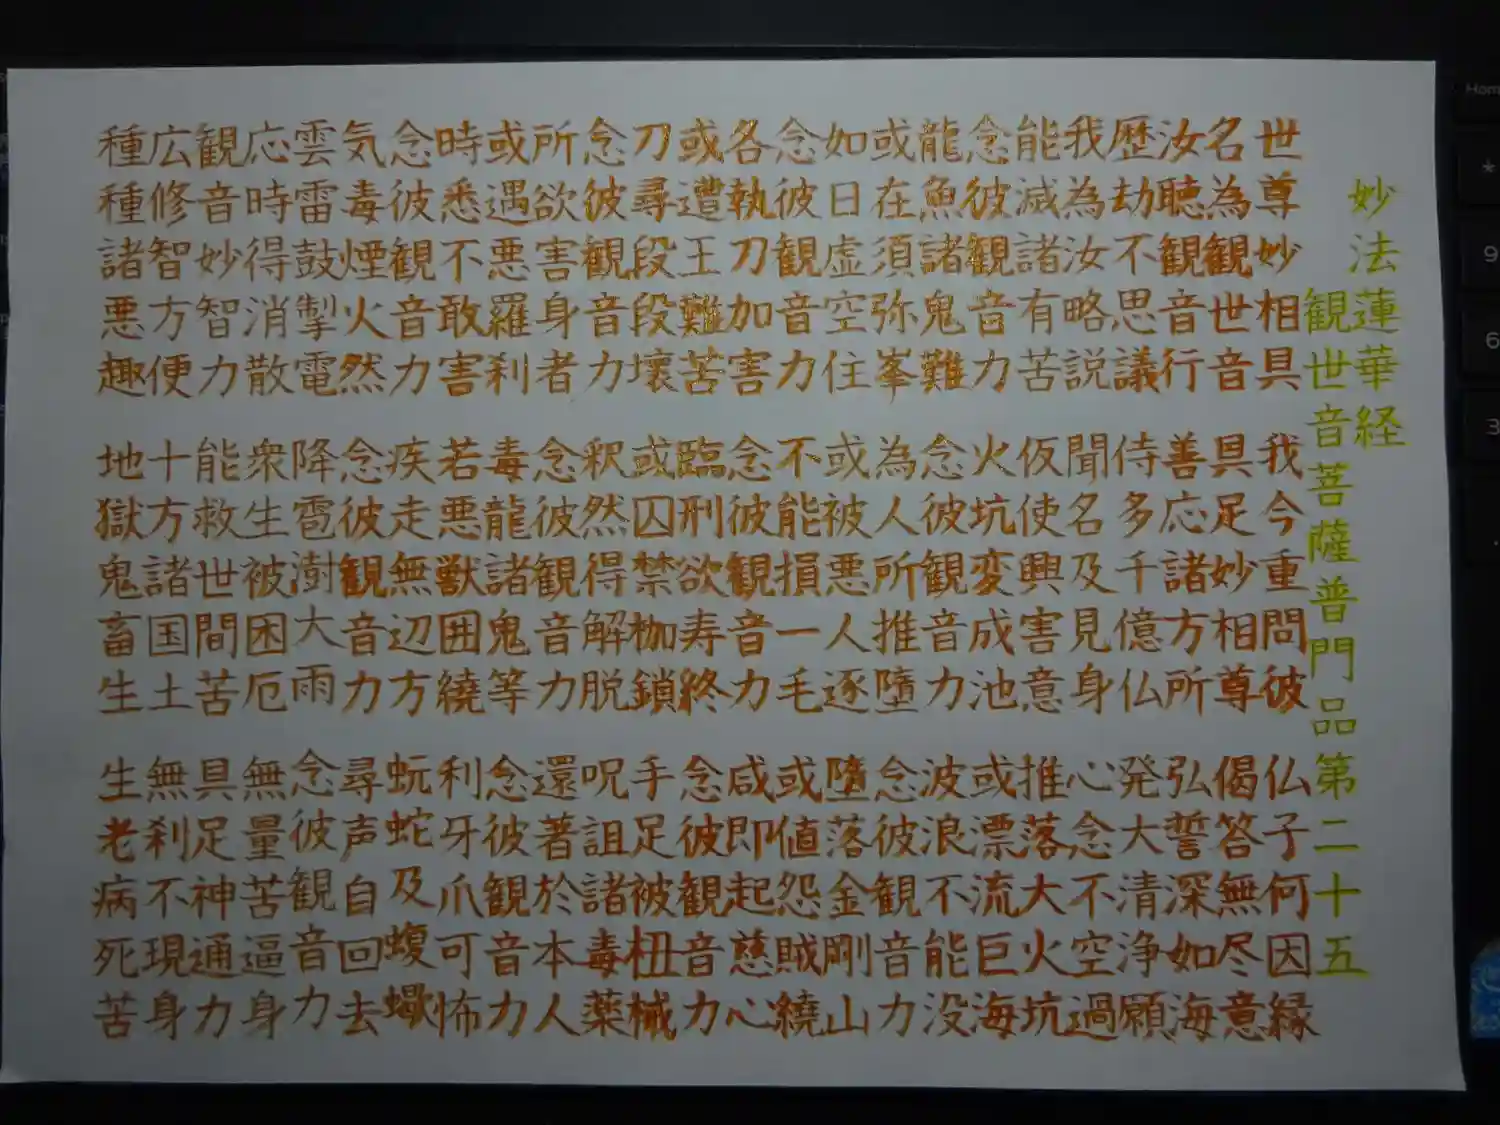 妙法蓮華経
観世音菩薩普門品第二十五
世尊妙相具 我今重問彼 仏子何因縁
名為観世音 具足妙相尊 偈答無尽意
汝聴観音行 善応諸方所 弘誓深如海
歴劫不思議 侍多千億仏 発大清浄願
我為汝略説 聞名及見身 心念不空過
能滅諸有苦 仮使興害意 推落大火坑
念彼観音力 火坑変成池 或漂流巨海
龍魚諸鬼難 念彼観音力 波浪不能没
或在須弥峯 為人所推墮 念彼観音力
如日虚空住 或被悪人逐 墮落金剛山
念彼観音力 不能損一毛 或値怨賊繞
各執刀加害 念彼観音力 咸即起慈心
或遭王難苦 臨刑欲寿終 念彼観音力
刀尋段段壊 或囚禁枷鎖 手足被杻械
念彼観音力 釈然得解脱 呪詛諸毒薬
所欲害身者 念彼観音力 還著於本人
或遇悪羅刹 毒龍諸鬼等 念彼観音力
時悉不敢害 若悪獣囲繞 利牙爪可怖
念彼観音力 疾走無辺方 蚖蛇及蝮蠍
気毒煙火然 念彼観音力 尋声自回去
雲雷鼓掣電 降雹澍大雨 念彼観音力
応時得消散 衆生被困厄 無量苦逼身
観音妙智力 能救世間苦 具足神通力
広修智方便 十方諸国土 無刹不現身
種種諸悪趣 地獄鬼畜生 生老病死苦